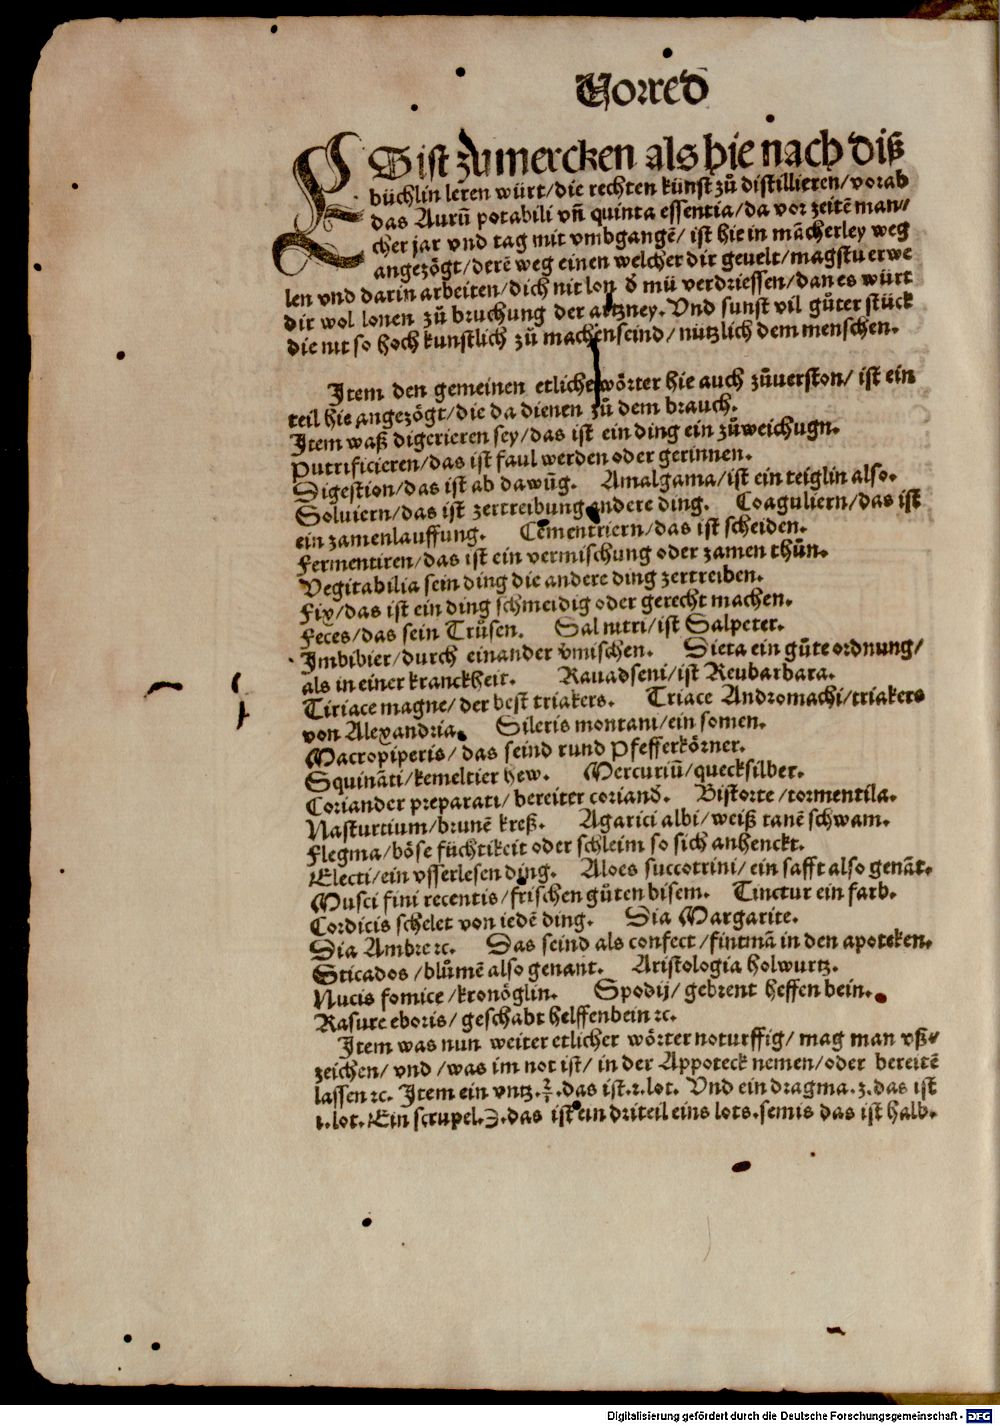 Vorred
ES ist zů mercken als hie nach diß
büchlin leren würt/die rechten künst zů distillieren/vorab
das Aurū potabili vn̄ quinta essentia/da vor zeitē man//
cher jar vnd tag mit vmbgangē/ ist hie in mācherley weg
angezögt/derē weg einen welcher dir geuelt/magstu erwe
len vnd darin arbeiten/dich nit lon d̕ mü verdriessen/dan es würt
dir wol lonen zů bruchung der artzney. Vnd sunst vil gůter stück
die nit so hoch kunstlich zů machen seind/ nützlich dem menschen.
Item den gemeinen etliche wörter hie auch zůuerston/ ist ein
teil hie angezögt/die da dienen zů dem brauch.
Item waß digerieren sey/das ist ein ding ein zůweichugn.
Putrificieren/das ist faul werden oder gerinnen.
Digestion/das ist ab dawūg. Amalgama/ist ein teiglin also.
Soluiern/das ist zertreibung andere ding. Coaguliern/das ist
ein zamenlauffung. Cementriern/das ist scheiden.
Fermentiren/das ist ein vermischung oder zamen thůn.
Vegitabilia sein ding die andere ding zertreiben.
Fix/das ist ein ding schmeidig oder gerecht machen.
Feces/das sein Trůsen. Sal nitri/ist Salpeter.
Imbibier/durch einander vmischen. Dieta ein gůte ordnung/
als in einer kranckheit. Rauadseni/ist Reubarbara.
Tiriace magne/der best triakers. Triace Andromachi/triakers
von Alexandria. Sileris montani/ein somen.
Macropiperis/ das seind rund Pfefferkörner.
Squināti/kemeltier hew. Mercuriū/quecksilber.
Coriander preparati/ bereiter coriand̕. Bistorte/tormentila.
Nasturtium/brunē kreß. Agarici albi/weiß tanē schwam.
Flegma/böse füchtikeit oder schleim so sich anhenckt.
Electi/ein vsserlesen ding. Aloes succotrini/ ein safft also genāt.
Musci fini recentis/frischen gůten bisem. Tinctur ein farb.
Cordicis schelet von iedē ding. Dia Margarite.
Dia Ambre ⁊c. Das seind als confect/fintmā in den apoteken.
Sticados/blůmē also genant. Aristologia holwurtz.
Nucis fomice/kronöglin. Spodij/ gebrent heffen bein.
Rasure eboris/ geschabt helffenbein ⁊c.
Item was nun weiter etlicher wörter noturffig/ mag man vß//
zeichen/ vnd /was im not ist/ in der Appoteck nemen/oder bereitē
lassen ⁊c. Item ein vntz.℥.das ist.2.lot. Vnd ein dragma.ʒ.das ist
1.lot. Ein scrupel.℈.das ist ein driteil eins lots.semis das ist halb.
Digitalisierung gefördert durch die Deutsche Forschungsgemeinschaft - DFG